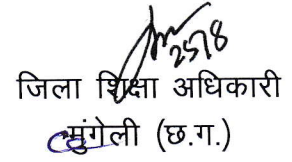 2578
जिला शिक्षा अधिकारी
मुंगेली (छ.ग.)